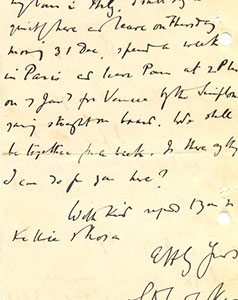 in Italy. I shall
quit here and leave on Thursday
morning 31 Dec, spend a week
in Paris and leave Paris at 2 PM
on 7 Jan for Venice by the Simplon
going straight on board. We shall
be together for a week. Is there any thing
I can do for you here?
With kind regards
Kellie
Yours